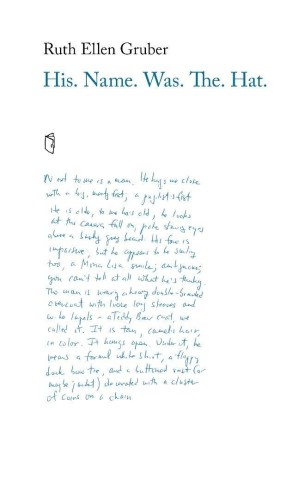 Ruth Ellen Gruber
His. Name. Was. The. Hat.
Next to me is a man. He hugs me close
with a big, meaty fist, a pugilist's fist
He is old, to me he's old, he looks
at the camera full on, pale staring eyes
above a bushy grey beard. His face is
impassive, but he appears to be smiling
too, a Mona Lisa smile, ambiguous,
you can't tell at all what he's thinking.
The man is wearing a heavy double-breasted
overcoat with loose long sleeves and
wide lapels - a Teddy Bear coat, we
called it. It is tan, camel's hair,
in color. It hangs open. Under it, he
wears a formal white shirt, a floppy
dark bow tie, and a buttoned vest (or
maybe jacket) decorated with a cluster
of coins on a chain